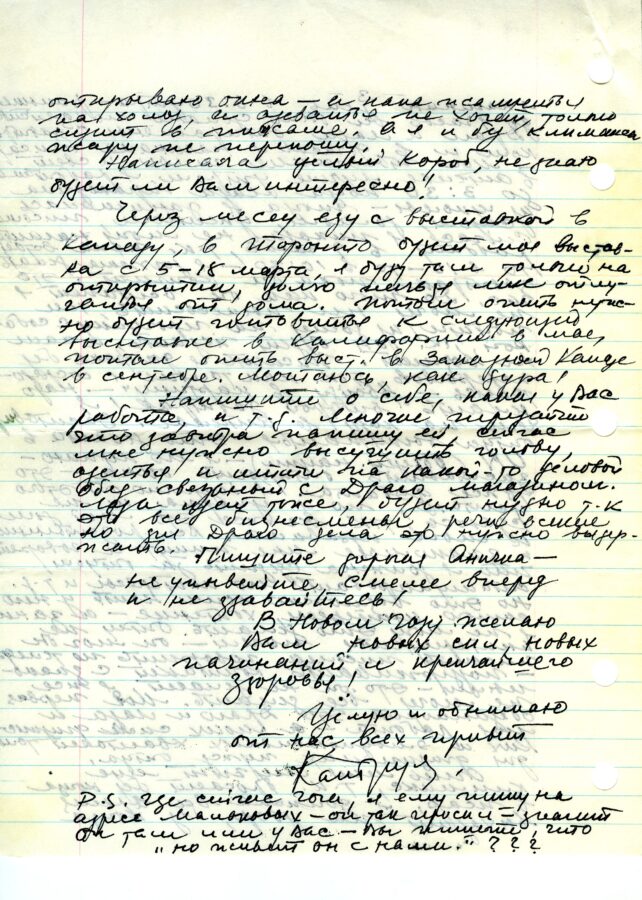 открываю окна — а папа жалуется
на холод, а одеваться не хочет, только
сидит в пижаме. А я и бу Климакса
жару не переношу.
Написала целый короб, не знаю
будет ли Вам интересно!
Через месец еду с выставкой в
Канаду, в Торонто будит моя выстав-
ка с 5-18 марта, я буду там только на
открытии, долго нельзя мне отлу-
чаться от дома. Потом опять нуж-
но будит готовиться к следующей
выставке в Калифорнии в мае,
потом опять выст. в Западной Канаде
в сентебре. Мотаюсь, как дура!
Напишите о себе, какая у Вас
работа, и т.д. Многие передайте
что завтра напишу ей, сейчас
мне нужно высушить голову,
одеться и итти на какой-то деловой
обед связаный с Драго магазином.
идет тоже, будет нудно т.к
это все бизнесмены, речи всякие
но для Драго дела это нужно выдер-
жать.
Пишите дорогая Аничка —
не унывайте, смелее вперед
и не здавайтесь!
В Новом году желаю
Вам новых сил, новых
начинаний и крепчайшего
здоровья!
Целую и обнимаю
от нас всех привет
P.S. Где сейчас Гога, я ему пишу на
адрес — он так просил — значит
он там или у Вас — Вы пишете, что
„но живет он с нами." ? ? ?